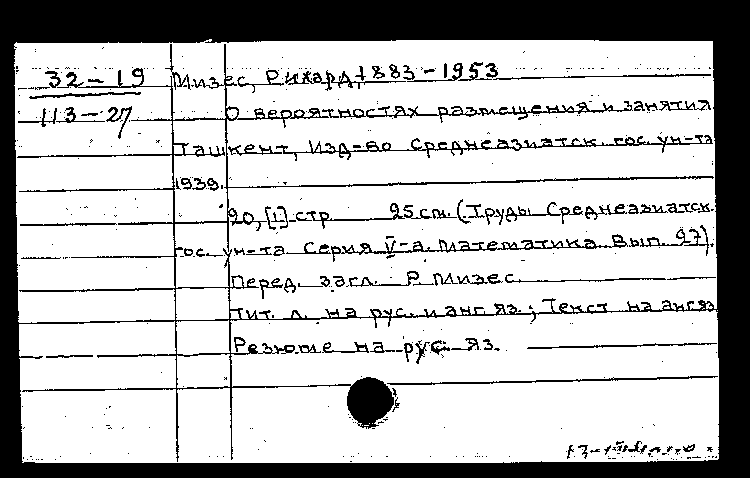 32-19
Мизес, Рихард, 1883-1953
113-27
О вероятностях размещения и занятия
Ташкент, Изд-во Среднеазиатск. гос. ун-та
1939.
20, [1] стр 25 см. (Труды Среднеазиатск.
гос. ун-та Серия V-а. Математика. Вып. 27).
Перед. загл. Р. Мизес.
Тит. л. на рус. и анг яз.; Текст на анг яз
Резюме на рус яз.